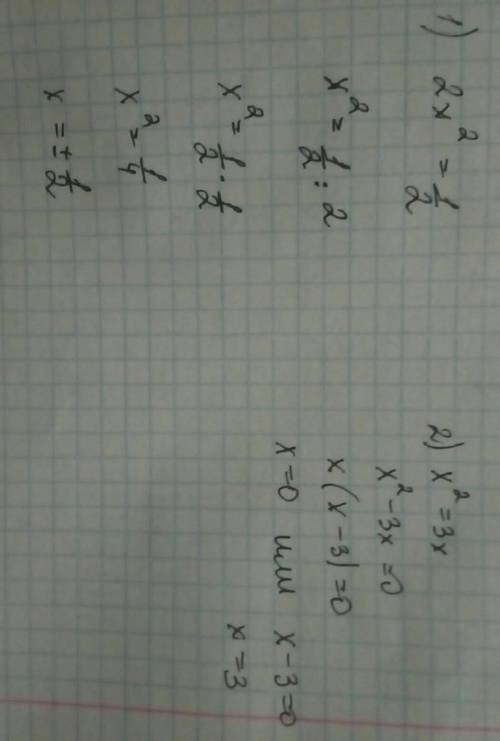 1) 2x² = 1/2
x² = 1/2 : 2
x² = 1/2 · 1/2
x² = 1/4
x = ± 1/2
2) x² = 3x
x² - 3x = 0
x(x - 3) = 0
x = 0 или x - 3 = 0
x = 3